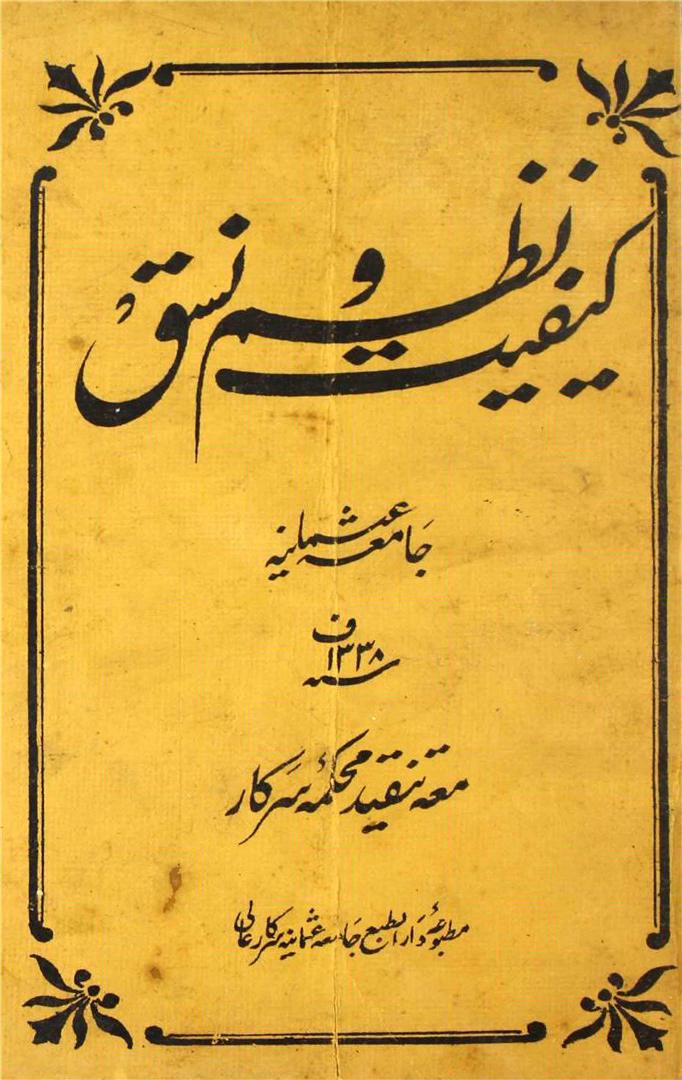 کیفیت نظم و نسق
جامعہ عثمانیہ
سنہ ۱۳۳۸ ف
معہ تنقید محکمۂ سرکار
مطبوعۂ دار الطبع جامعہ عثمانیہ سرکار عالی